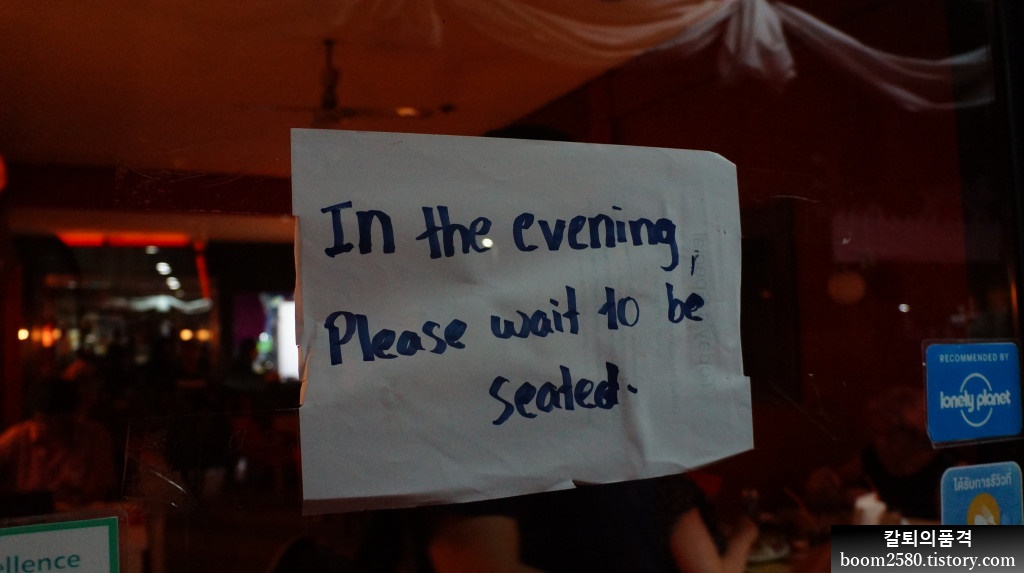 In the evening,
Please wait to be
seated.
RECOMMENDED BY
lonely planet
ได้รับการรีวิวที่
ellence
칼퇴의품격
boom2580.tistory.com